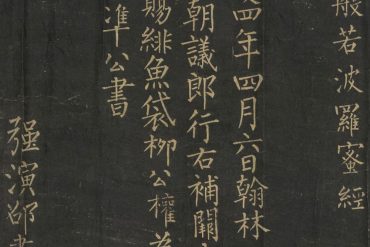 般若波羅蜜經
四年四月六日翰林
朝議郎行右補闕
賜緋魚袋柳公權為
準公書
强演邵